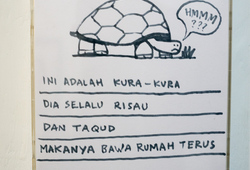 HMMM
???
INI ADALAH KURA-KURA
DIA SELALU RISAU
DAN TAQUD
MAKANYA BAWA RUMAH TERUS